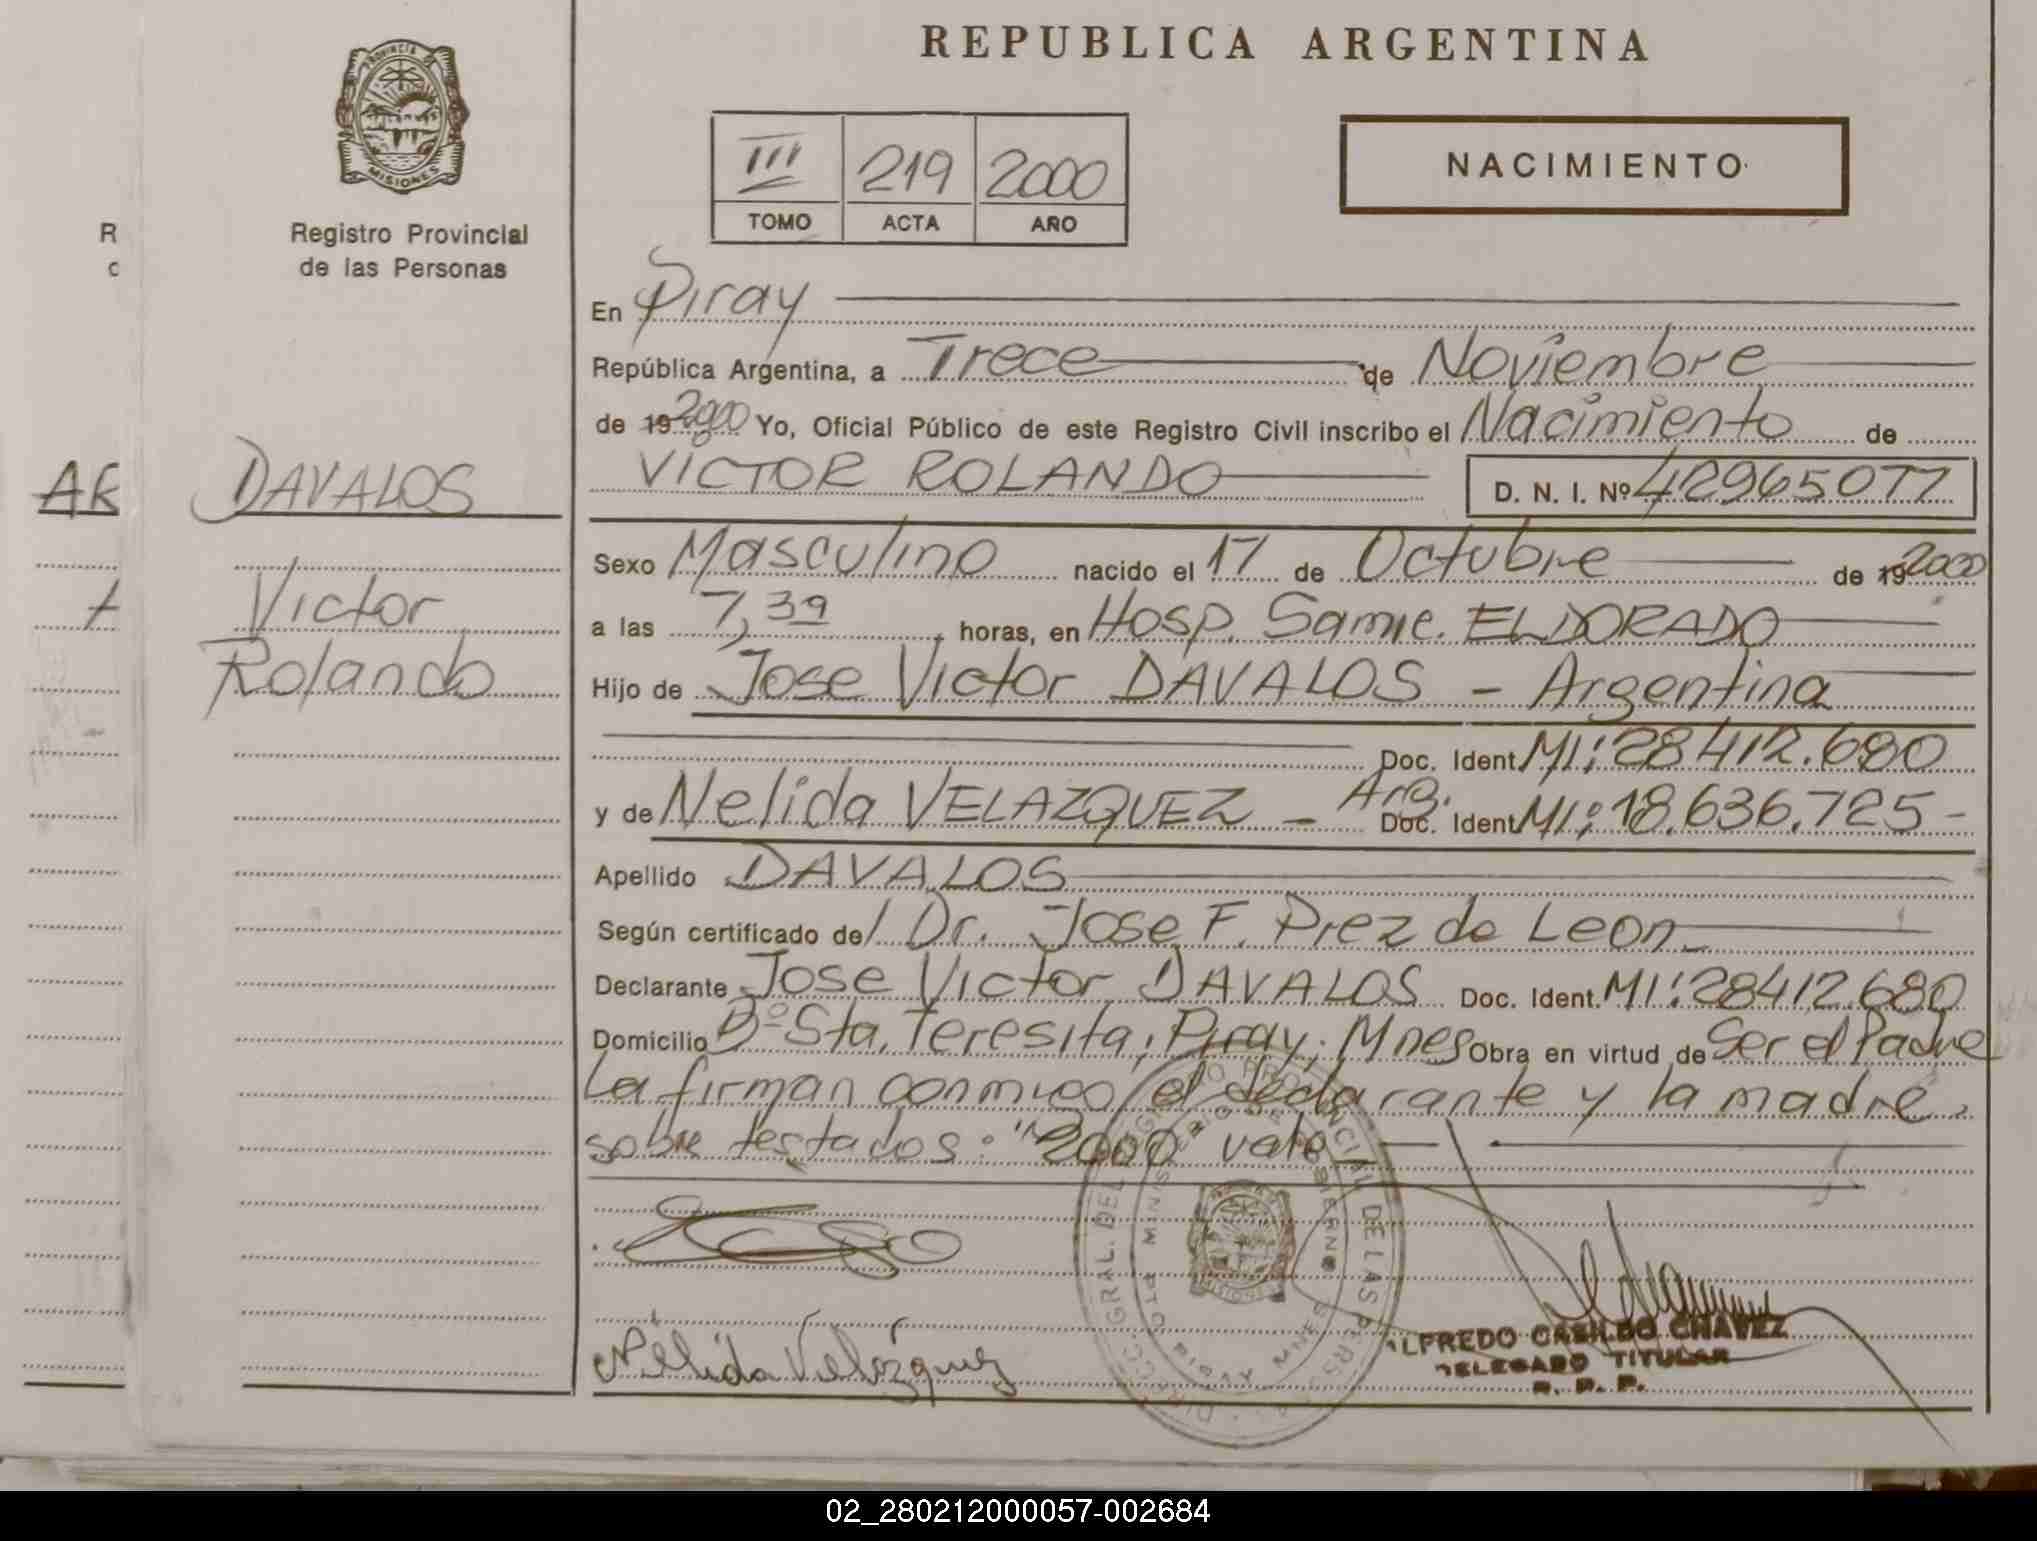 REPUBLICA ARGENTINA
PROVINCIA
MISIONES
Registro Provincial
de las Personas
III 219 2000
TOMO ACTA AÑO
NACIMIENTO
R
c
AR
DAVALOS
Victor
Rolando
En Piray
República Argentina, a Trece de Noviembre
de 19 2000 Yo, Oficial Público de este Registro Civil inscribo el Nacimiento de
VICTOR ROLANDO D. N. I. Nº 42965077
Sexo Masculino nacido el 17 de Octubre de 19 2000
a las 7,39 horas, en Hosp. Samic. ELDORADO
Hijo de Jose Victor DAVALOS - Argentina
Doc. Ident. MI: 28412.680
y de Nelida VELAZQUEZ - Arg. Doc. Ident. MI: 18.636.725-
Apellido DAVALOS
Según certificado del Dr. Jose F. Prez de Leon
Declarante Jose Victor DAVALOS Doc. Ident. MI: 28412.680
Domicilio Bº Sta. Teresita, Piray, Mnes Obra en virtud de Ser el Padre
La firman conmigo el declarante y la madre,
sobre testados: "2000 vale
DIRECC. GRAL. DEL REGISTRO PROVINCIAL DE LAS PERSONAS
MINISTERIO DE GOBIERNO
PIRAY MNES
Nélida Velázquez
ALFREDO CASILDO CHAVEZ
DELEGADO TITULAR
R. P. P.
02_280212000057-002684